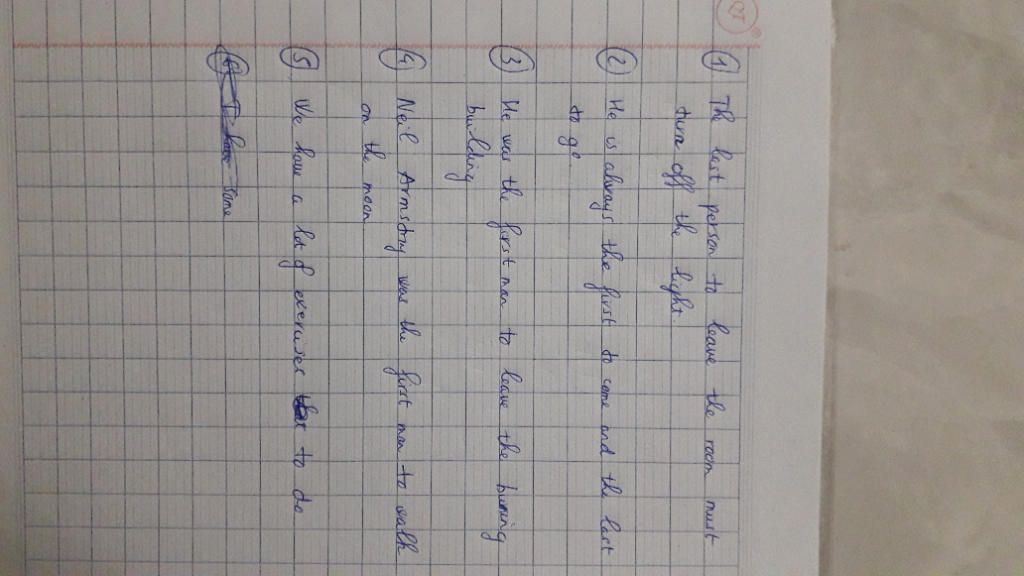 ① The last person to leave the room must
turn off the light.
② He is always the first to come and the last
to go.
③ He was the first man to leave the burning
building
④ Neil Armstrong was the first man to walk
on the moon
⑤ We have a lot of exercises to do
some